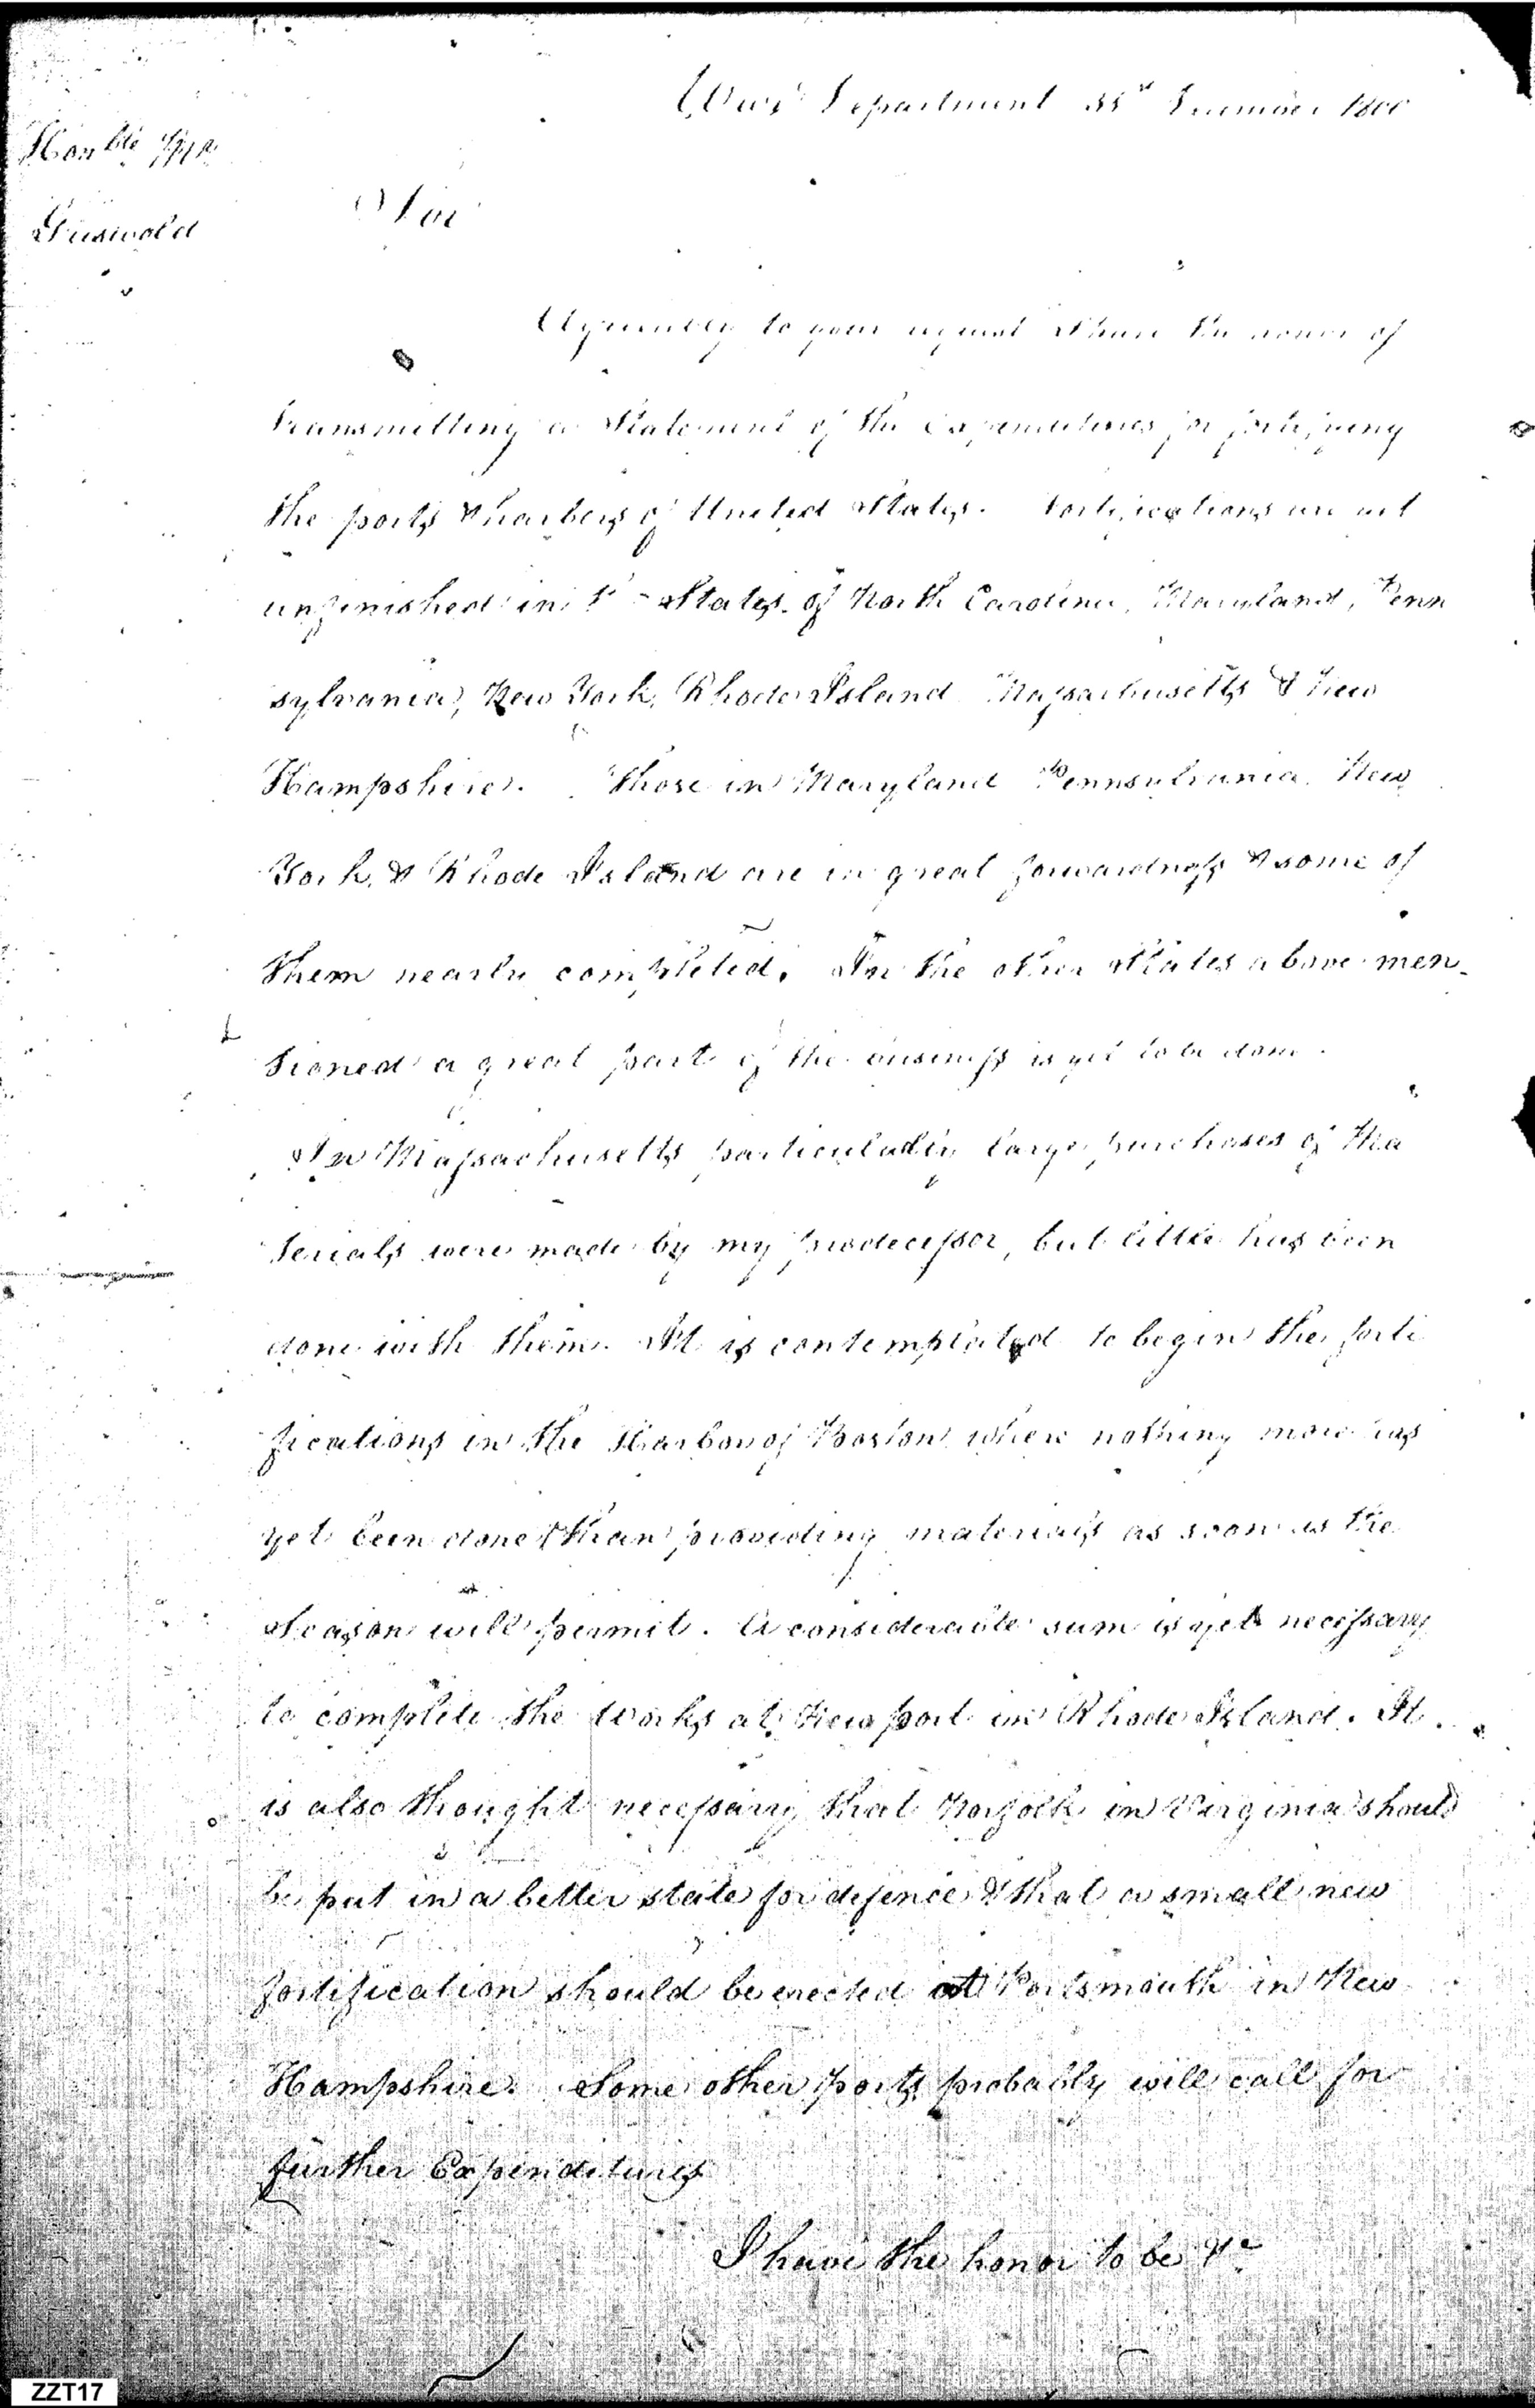 War Department December 1800
Honble Mr
Griswold
Sir
Agreeably to your request I have the honor of
transmitting a Statement of the Expenditures for fortifying
the ports & harbors of United States. Fortifications are yet
unfinished in States of North Carolina, Maryland, Penn
sylvania, New York, Rhode Island Massachusetts & New
Hampshire. Those in Maryland Pennsylvania, New
York, & Rhode Island are in great forwardness & some of
them nearly completed. In the other States above men-
tioned a great part of the business is yet to be done.
In Massachusetts particularly large purchases of Ma
terials were made by my predecessor, but little has been
done with them. It is contemplated to begin the forti
fications in the Harbor of Boston where nothing more has
yet been done than providing materials as soon as the
Season will permit. A considerable sum is yet necessary
to complete the works at Newport in Rhode Island. It
is also thought necessary that Norfolk in Virginia should
be put in a better state for defence & that a small new
fortification should be erected at Portsmouth in New
Hampshire. Some other ports probably will call for
further Expenditures
I have the honor to be &c
ZZT17